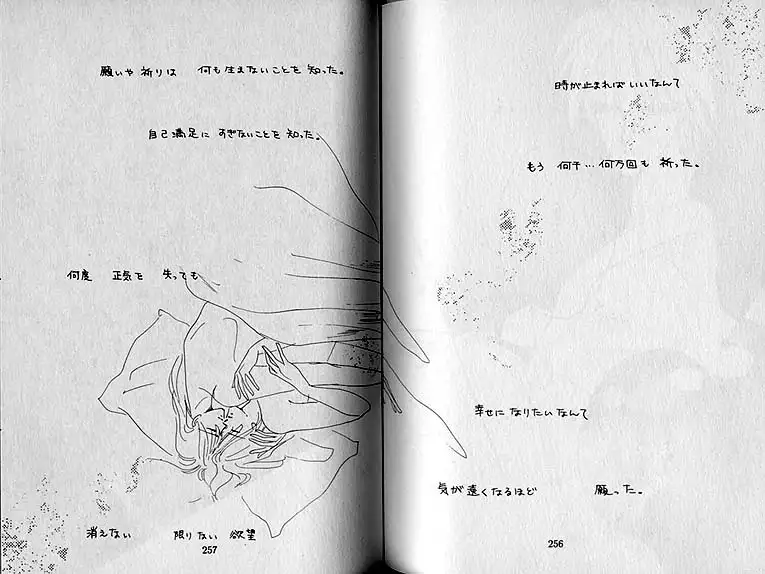 時が止まればいいなんて
もう 何千…何万回も 祈った。
幸せに なりたいなんて
気が遠くなるほど 願った。
256
願いや 祈りは 何も生まないことを 知った。
自己満足に すぎないことを 知った。
何度 正気を 失っても
消えない 限りない 欲望
257